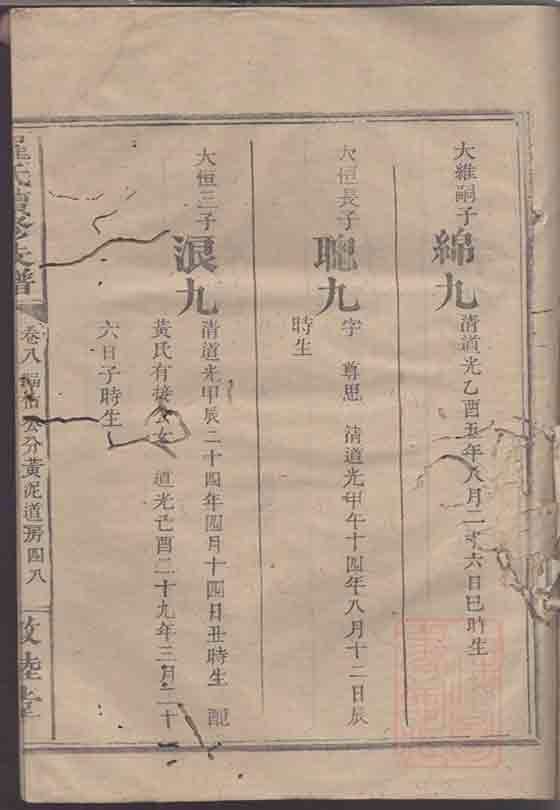 大維嗣子
綿九
清道光乙酉五年八月一十六日巳時生
大恒長子
聰九
字 尊思 清道光甲午十四年八月十二日辰
時生
大恒三子
浪九
清道光甲辰二十四年四月十四日丑時生 配
黃氏有接公女 道光己酉二十九年三月二十
六日子時生
氏續修支譜
卷八 福 公分黃泥道房 四八
敦睦堂